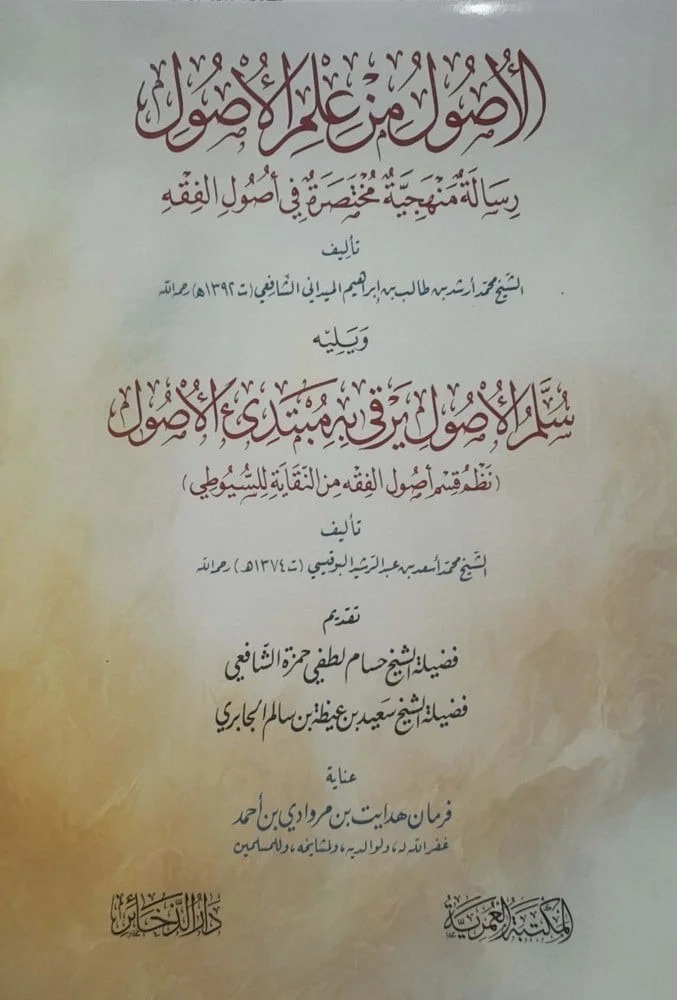 الأُصُولُ مِنْ عِلْمِ الأُصُولِ
رِسَالَةٌ مَنْهَجِيَّةٌ مُخْتَصَرَةٌ فِي أُصُولِ الفِقْهِ
تأليف
الشيخ محمد أرشد بن طالب بن إبراهيم الميداني الشافعي (ت ١٣٩٢هـ) رحمه الله
وَيَلِيْه
سُلَّمُ الأُصُولِ يَرْقَى بِهِ مُبْتَدِئُ الأُصُولِ
(نَظْمُ قِسْمِ أصُولِ الفِقْهِ مِنَ النّقَايَةِ لِلسُّيُوطِي)
تأليف
الشيخ محمد أسعد بن عبد الرشيد البوقيسي (ت ١٣٧٤هـ) رحمه الله
تقديم
فضيلة الشيخ حسام لطفي حمزة الشافعي
فضيلة الشيخ سعيد بن عيظة بن سالم الجابري
عناية
فرمان هدايت بن مروادي بن أحمد
غفر الله له، ولوالديه، ولمشايخه، وللمسلمين
المَكْتَبَةُ العُمَرِيَّة
دَارُ الذَّخَائِر